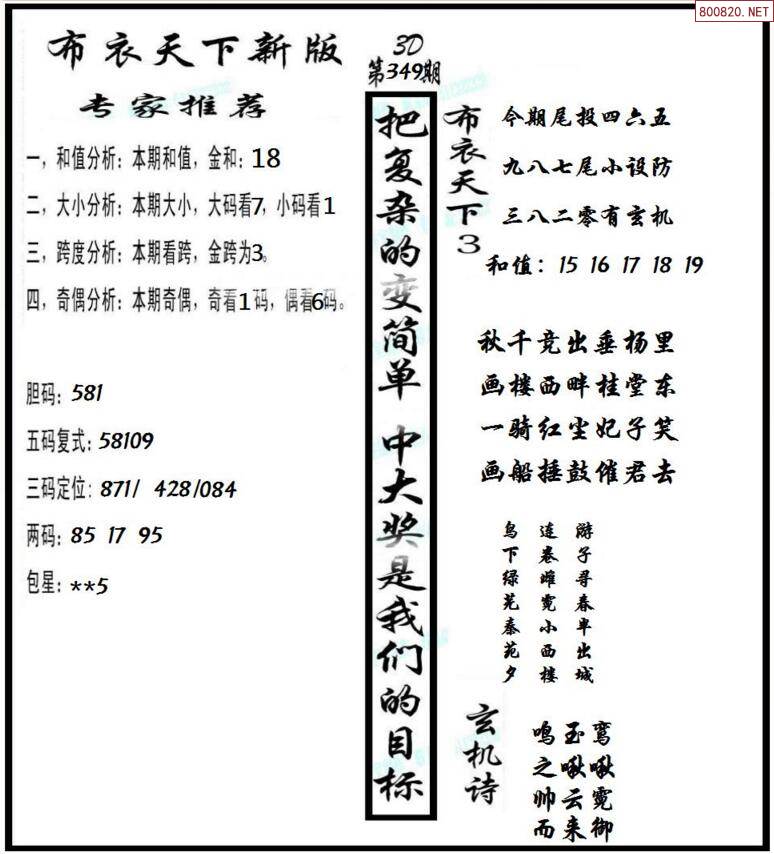 800820.NET
布衣天下新版
专家推荐
一，和值分析：本期和值，金和：18
二，大小分析：本期大小，大码看7，小码看1
三，跨度分析：本期看跨，金跨为3。
四，奇偶分析：本期奇偶，奇看1码，偶看6码。
胆码：581
五码复式：58109
三码定位：871/ 428/084
两码：85 17 95
包星：**5
3D
第349期
把复杂的变简单 中大奖是我们的目标
布衣天下3
今期尾投四六五
九八七尾小设防
三八二零有玄机
和值：15 16 17 18 19
秋千竞出垂杨里
画楼西畔桂堂东
一骑红尘妃子笑
画船捶鼓催君去
游子寻春半出城
连卷雌霓小西楼
鸟下绿芜秦苑夕
玄机诗
鸾啾霓御
玉啾云来
鸣之帅而